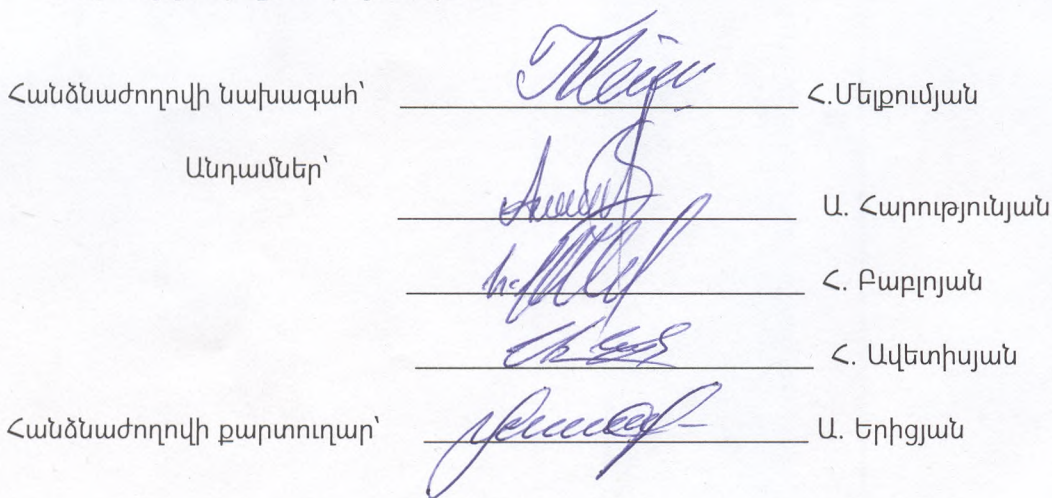 Հանձնաժողովի նախագահ՝ Հ.Մելքումյան
Անդամներ՝
Ա. Հարությունյան
Հ. Բաբլոյան
Հ. Ավետիսյան
Հանձնաժողովի քարտուղար՝ Ա. Երիցյան